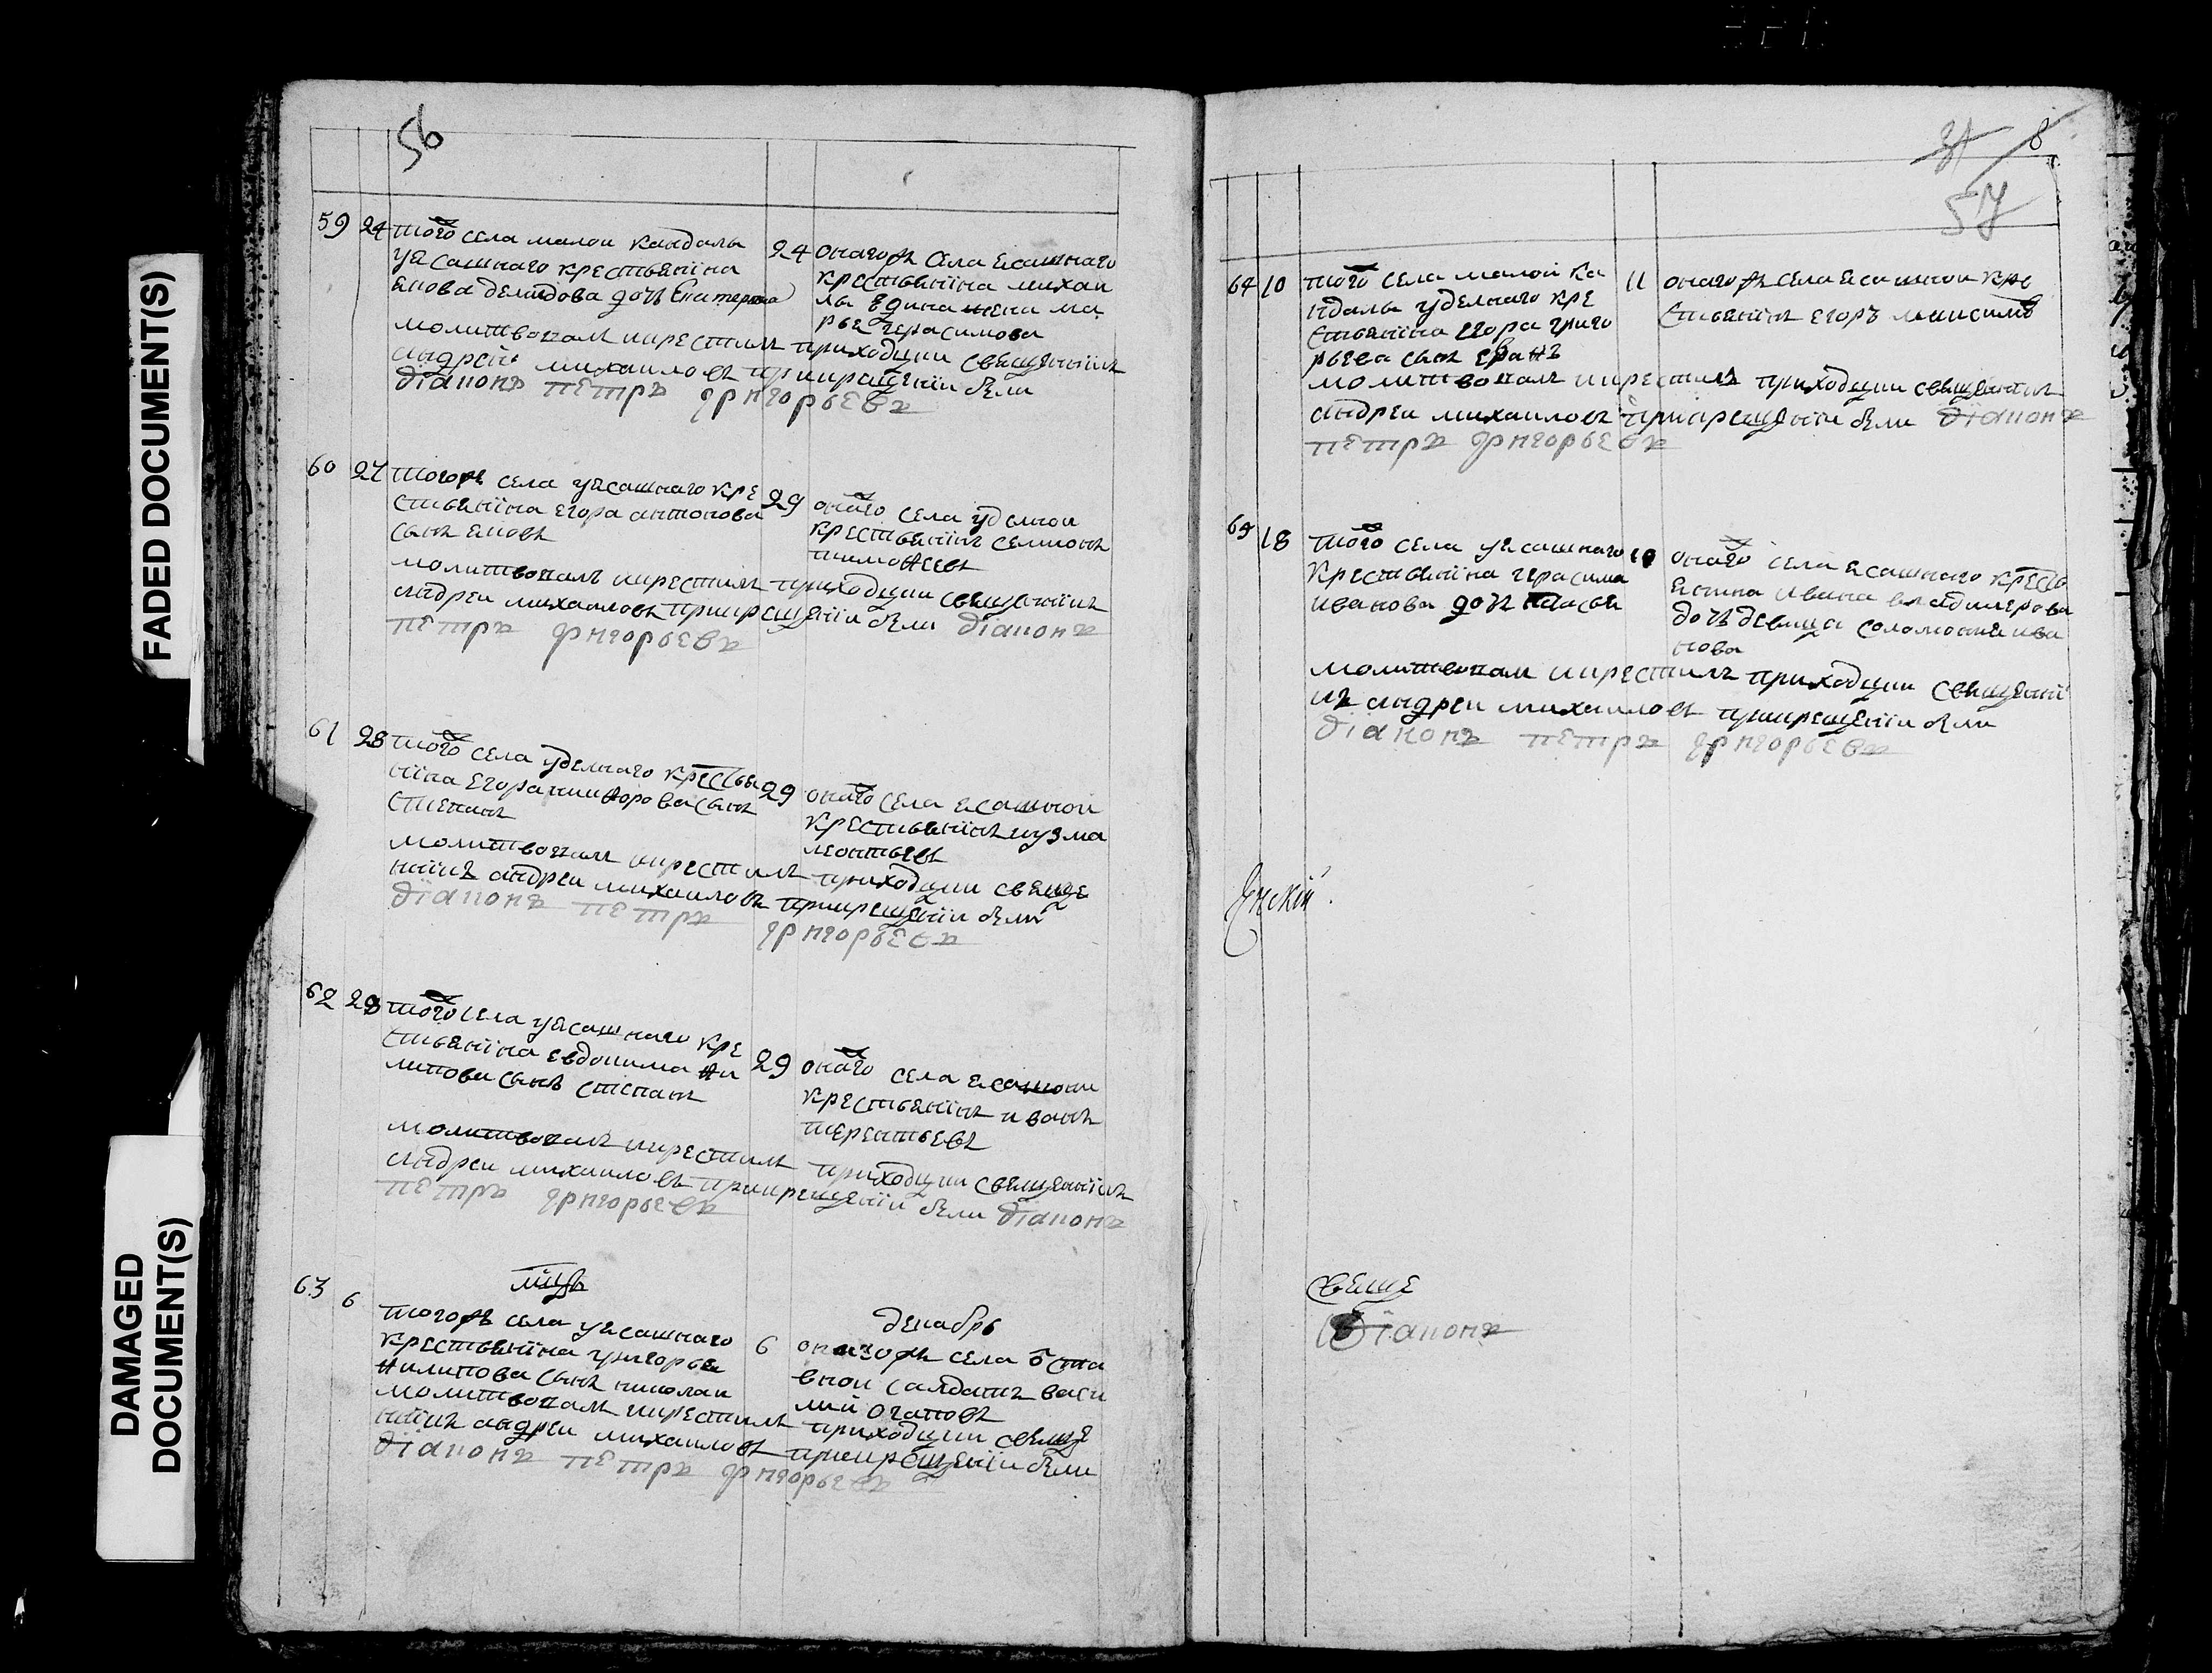 FADED DOCUMENT(S)
DAMAGED
DOCUMENT(S)
56
59 24 того села малои кандалы
уясашнаго крестьянїна
якова демидова дочь Екатерина
24 онагожъ села ясашнаго
крестьянїна михаи
лы жена ма
рья герасимова
молитвовалъ икрестилъ приходцки священникъ
андрей михаиловъ прикрещенїи были
дїаконъ петръ григорьевъ
60 27 тогожъ села уясашнаго кре
стьянїна егора антонова
сынъ яковъ
29 онаго села уделнои
крестьянїнъ семионъ
тимоѳеевъ
молитвовалъ икрестилъ приходцки священникъ
андреи михаиловъ прикрещенїи были дїаконъ
петръ григорьевъ
61 28 того села уделнаго крестья
нїна егора никиѳорова сынъ
степанъ
29 онаго села ясашнои
крестьянїнъ кузма
леонтьевъ
молитвовалъ икрестилъ приходцки свяще
ннїкъ андреи михаиловъ прикрещенїи были
дїаконъ петръ
григорьевъ
62 29 того села уясашнаго кре
стьянїна евдокима ѳи
липова сынъ степанъ
29 онаго села ясашнои
крестьянїнъ иванъ
терентьевъ
молитвовалъ икрестилъ приходцки священнїкъ
андреи михаиловъ прикрещенїи были дїаконъ
петръ григорьевъ
мцъ
декабрь
63 6 тогожъ села уясашнаго
крестьянїна григорья
ѳилипова сынъ николаи
6 онагожъ села ѿста
внои салдатъ васи
лїи
молитвовалъ икрестилъ приходцки свяще
ннїкъ андреи михаиловъ прикрещенїи были
дїаконъ петръ григорьевъ
8
57
64 10 того села малой ка
ндалы уделнаго кре
стьянїна егора григо
рьева сынъ
11 онагожъ села ясашнои кре
стьянїнъ егоръ максимовъ
молитвовалъ икрестилъ приходцки священникъ
андреи михаиловъ прикрещенїи были дїаконъ
петръ григорьевъ
65 18 того села уясашнаго
крестьянїна герасима
иванова дочь
онаго села ясашнаго кресть
янина ивана владимерова
дочь девица соломония ива
нова
молитвовалъ икрестилъ приходцки священнї
къ андреи михаиловъ прикрещенїи были
дїаконъ петръ григорьевъ
свяще
дїаконъ